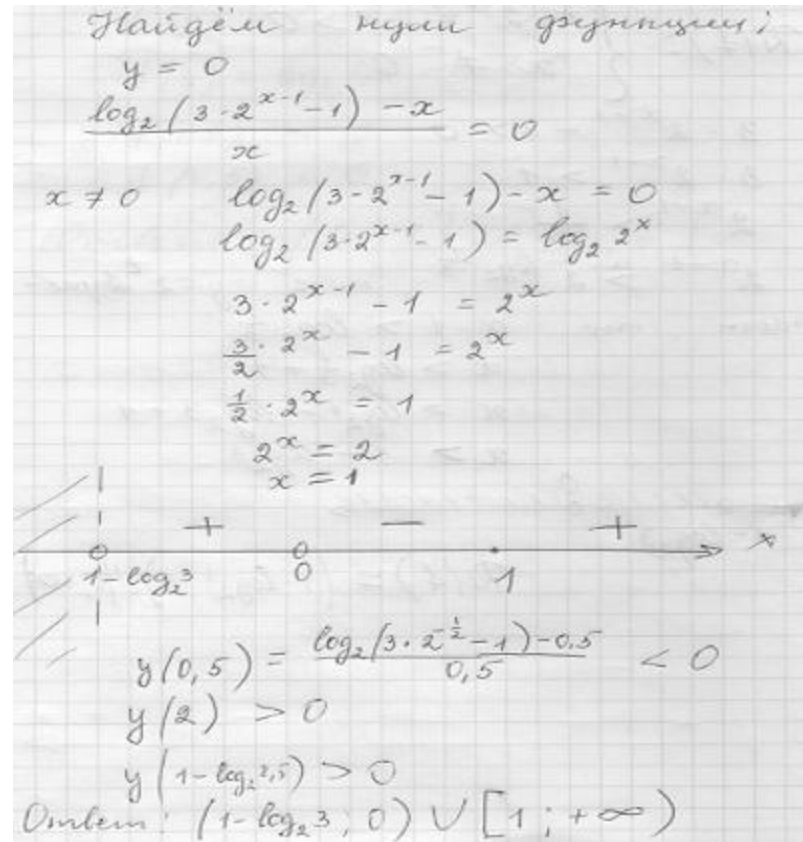 Найдём нули функции;
y = 0
(log₂(3·2^(x-1) - 1) - x) / x = 0
x ≠ 0 log₂(3·2^(x-1) - 1) - x = 0
log₂(3·2^(x-1) - 1) = log₂ 2^x
3·2^(x-1) - 1 = 2^x
3/2 · 2^x - 1 = 2^x
1/2 · 2^x = 1
2^x = 2
x = 1
+ − + x
1-log₂3 0 1
y(0,5) = (log₂(3·2^(-1/2) - 1) - 0,5) / 0,5 < 0
y(2) > 0
y(1-log₂2,5) > 0
Ответ: (1-log₂3; 0) ∪ [1; +∞)